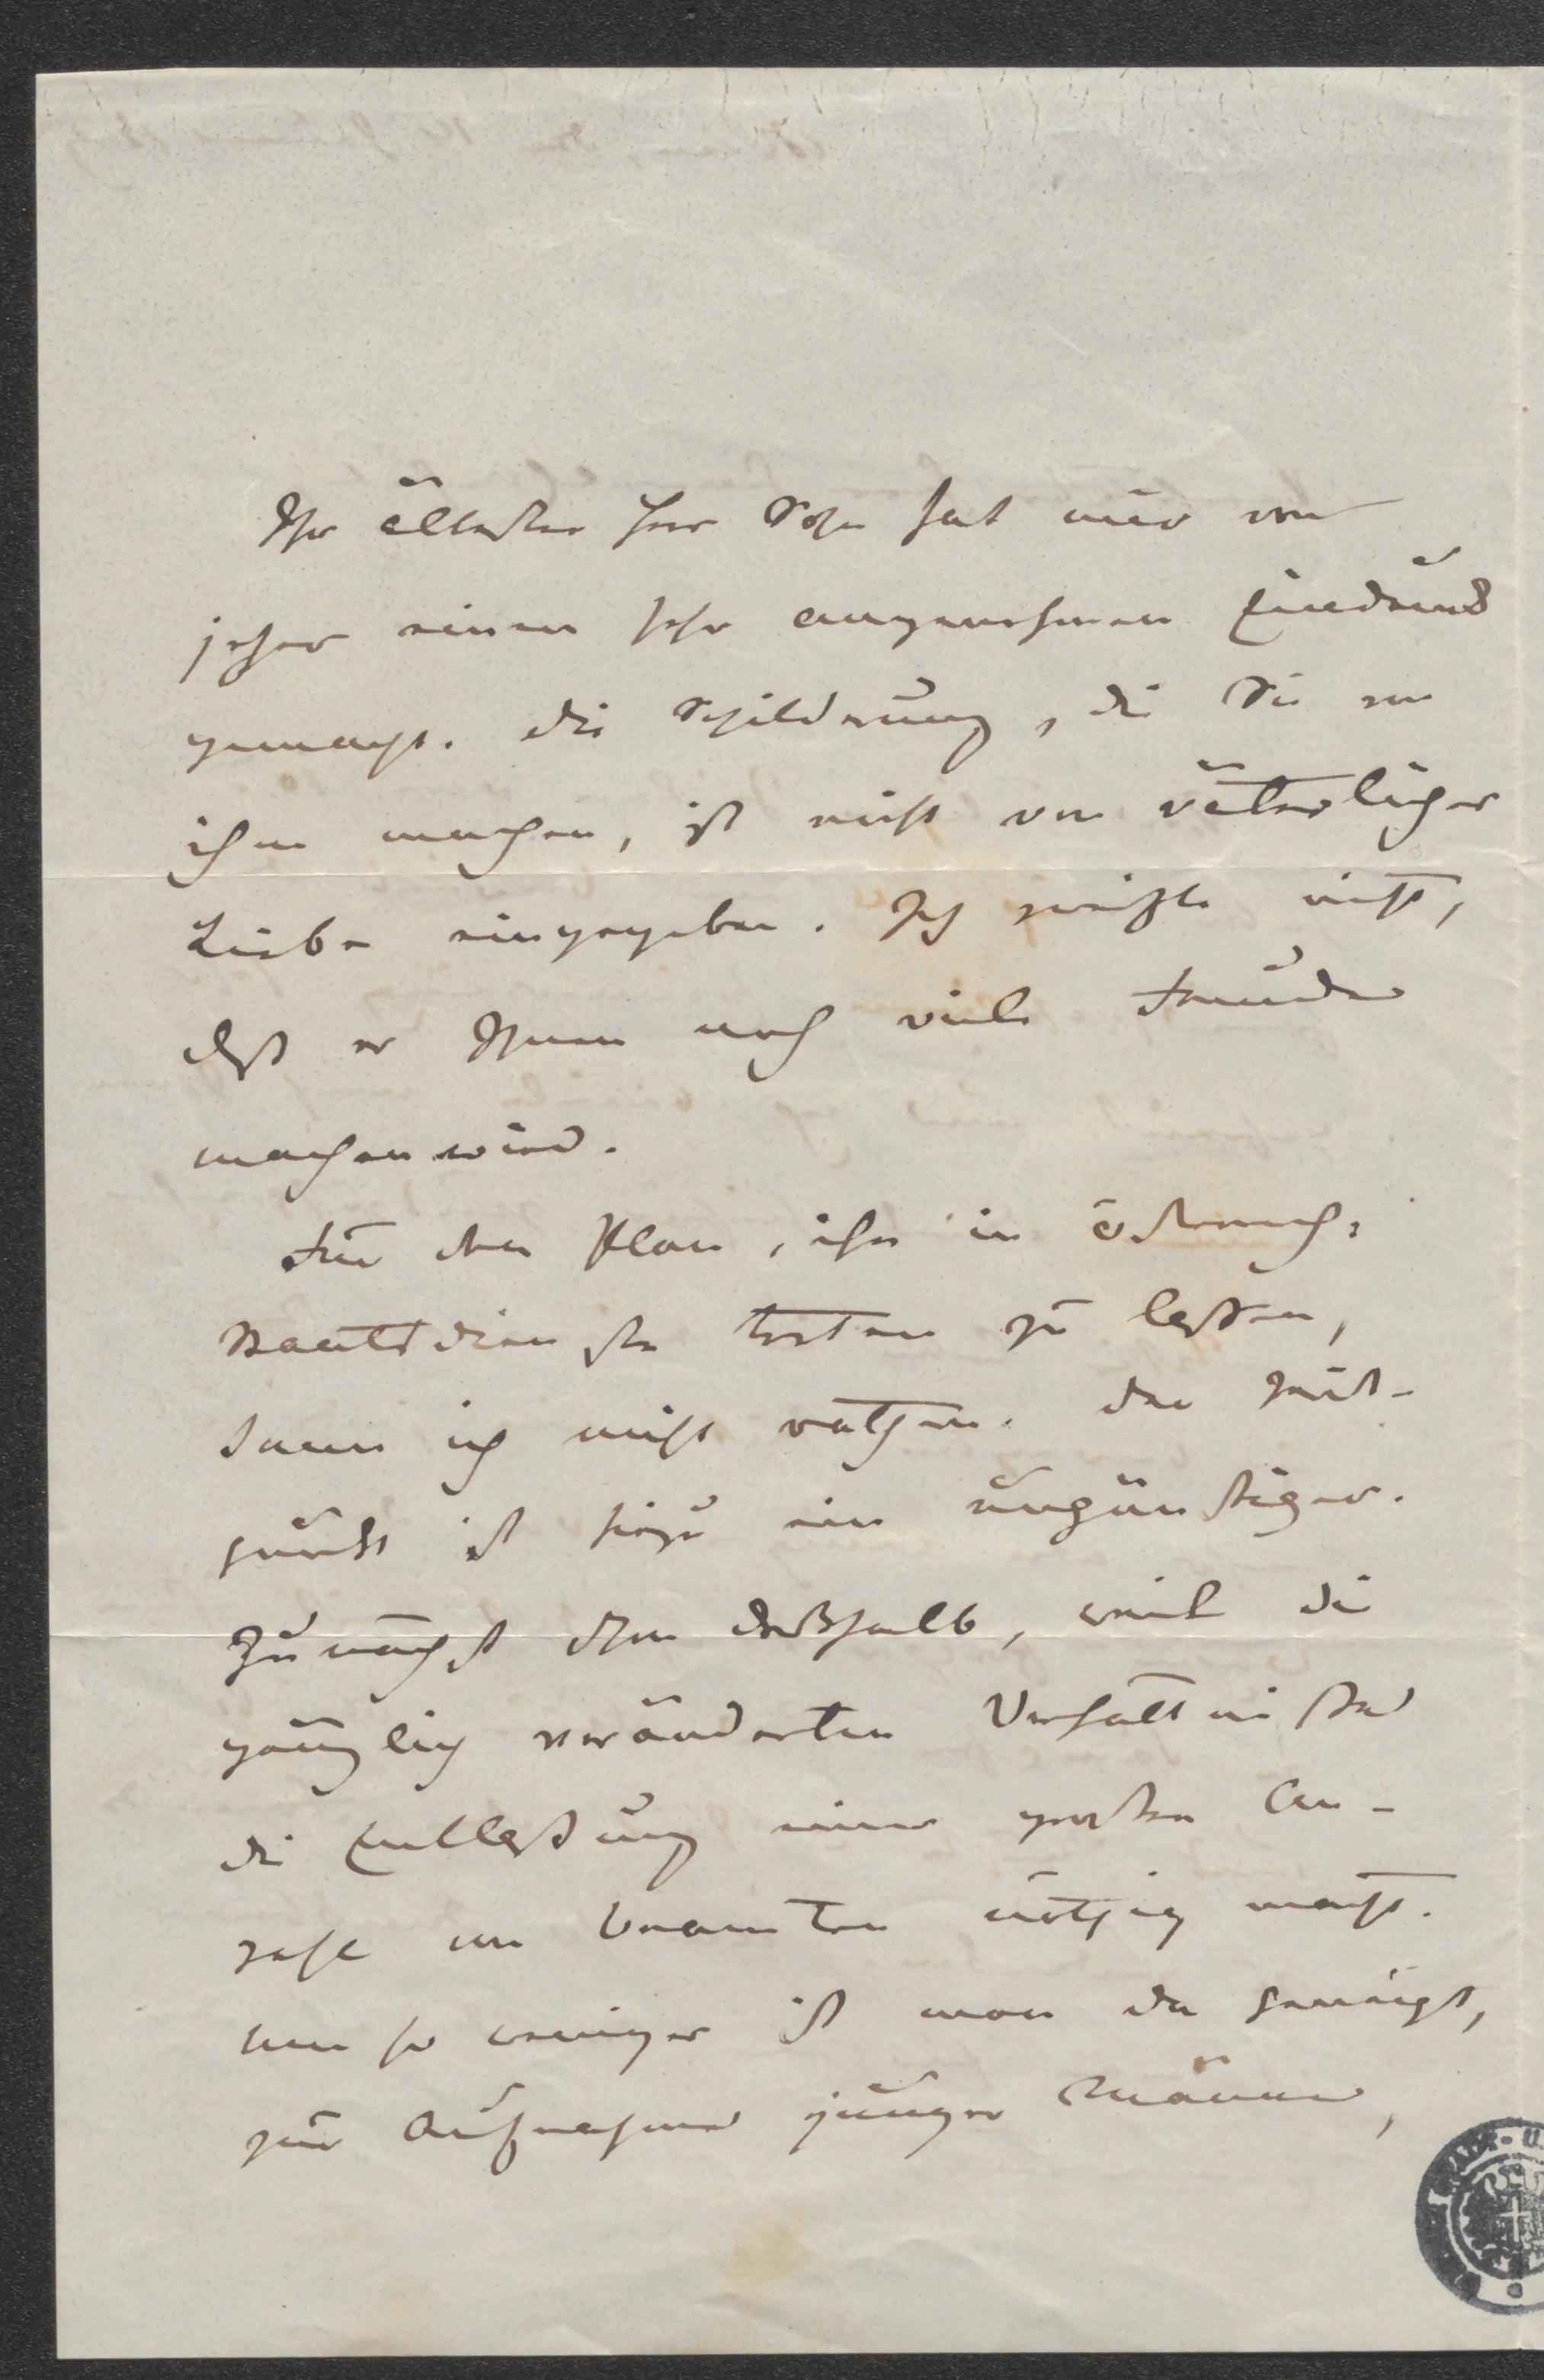 Ihr ältester Herr Sohn hat mir von
jeher einen sehr angenehmen Eindruck
gemacht. Die Schilderung, die Sie von
ihm machen, ist nicht von väterlicher
Liebe eingegeben. Ich zweifle nicht,
daß er Ihnen noch viele Freude
machen wird.
Für den Plan, ihn in österreich:
Staatsdienste treten zu lassen,
kann ich nicht rathen. Der Zeit-
punkt ist hiezu ein ungünstiger.
Zunächst schon deßhalb, weil die
gänzlich veränderten Verhältnisse
die Entlassung einer großen An-
zahl von Beamten nöthig macht.
Um so weniger ist man da geneigt,
zur Aufnahme junger Männer,